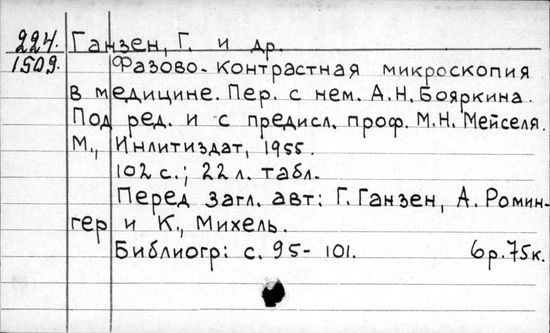 224. Ганзен, Г. и др.
1509. Фазово-контрастная микроскопия
в медицине. Пер. с нем. А.Н. Бояркина.
Под ред. и с предисл. проф. М.Н. Мейселя.
М., Инлитиздат, 1955.
102 с.; 22 л. табл.
Перед загл. авт: Г. Ганзен, А.Ромин-
гер и К., Михель.
Библиогр: с. 95-101. 6р.75к.